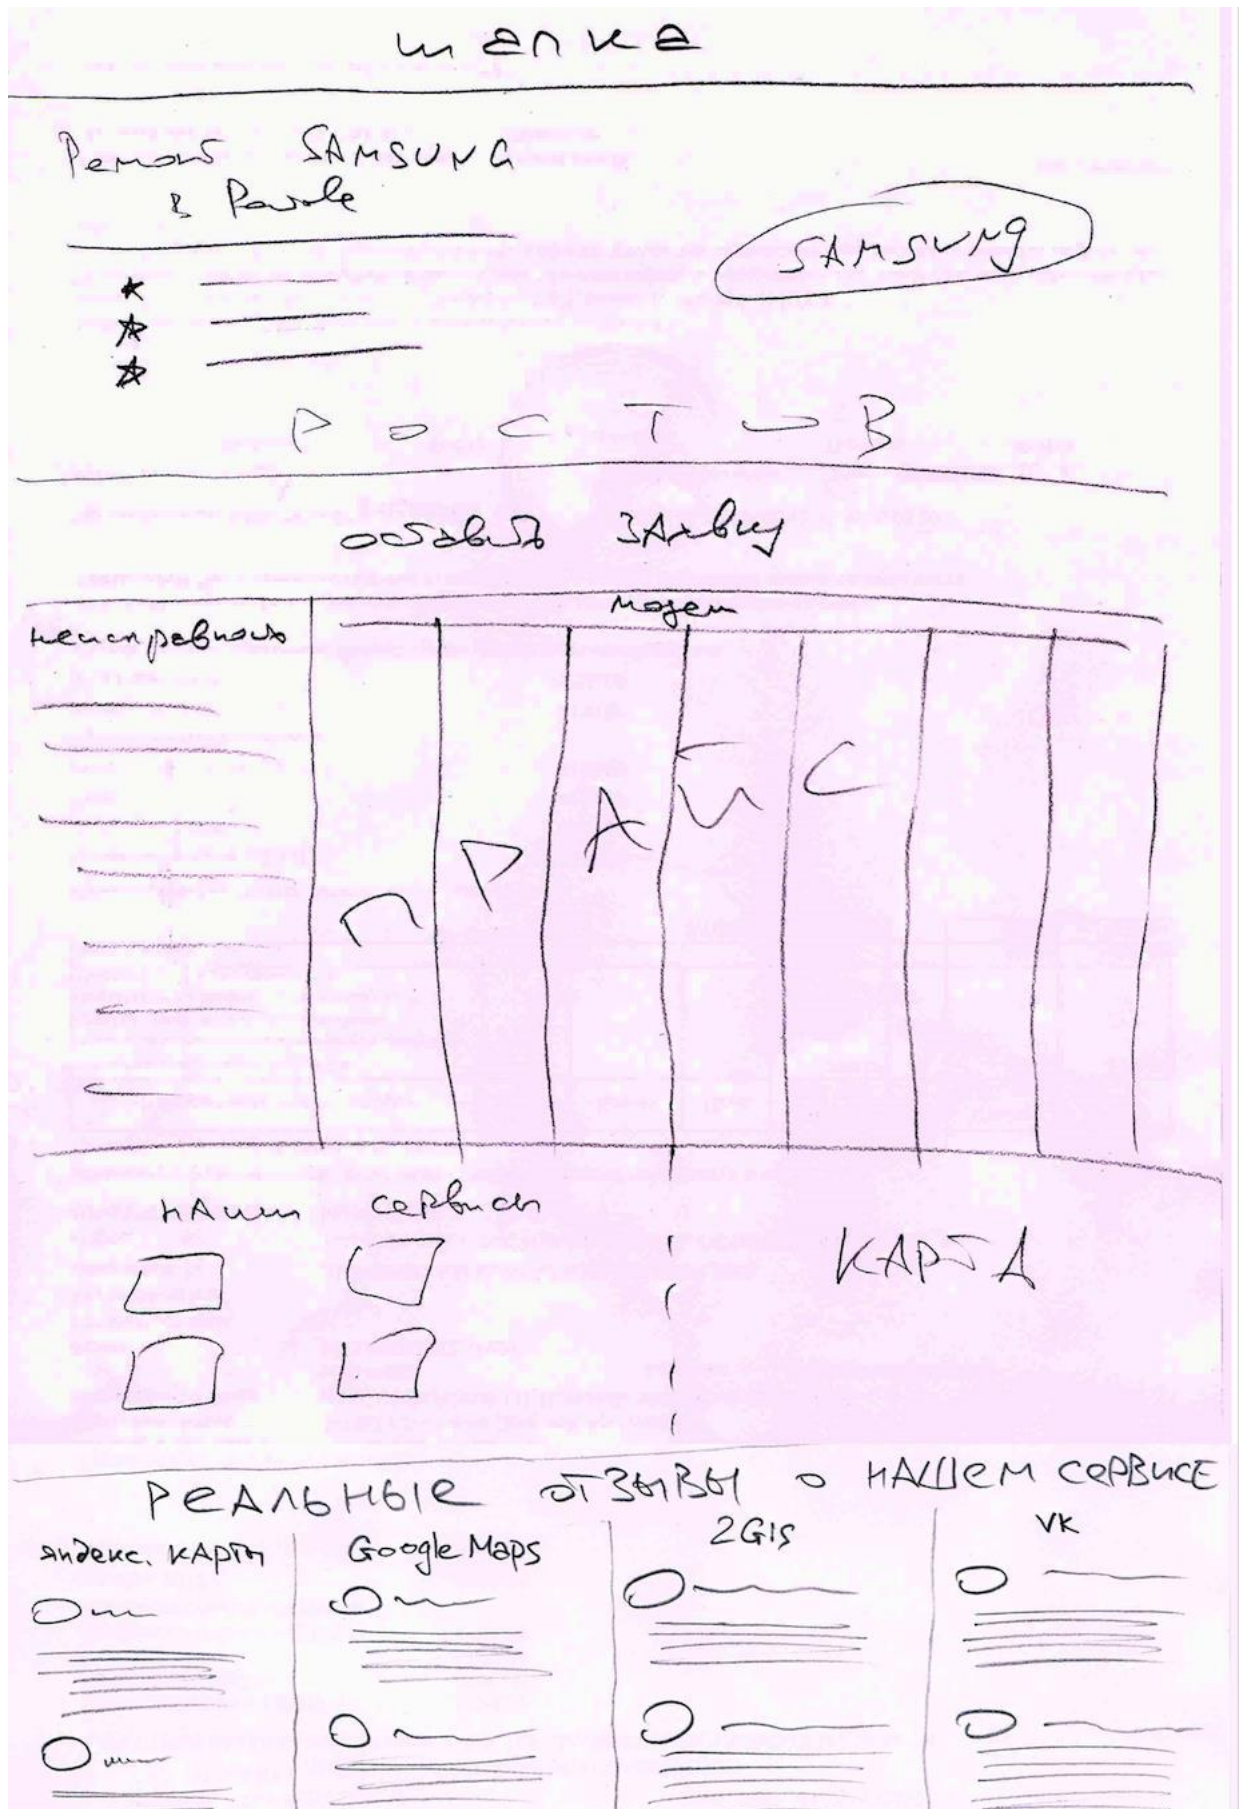 шапка
Ремонт SAMSUNG
в
SAMSUNG
РОСТОВ
оставить заявку
неисправность
модем
ПРАЙС
наши сервисы
КАРТА
РЕАЛЬНЫЕ ОТЗЫВЫ о НАШЕМ СЕРВИСЕ
яндекс. КАРТЫ
Google Maps
2GIS
VK